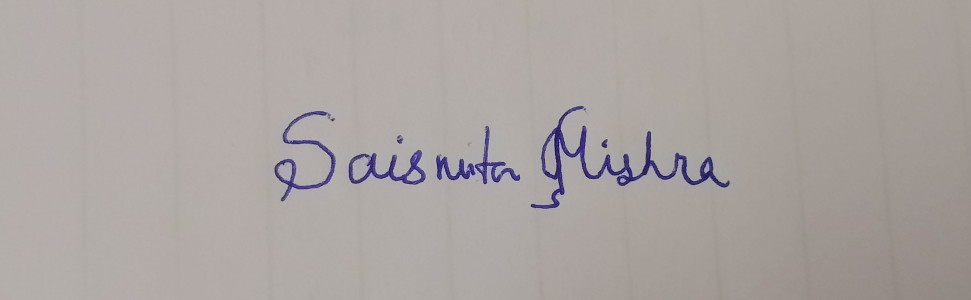 Saismita Mishra